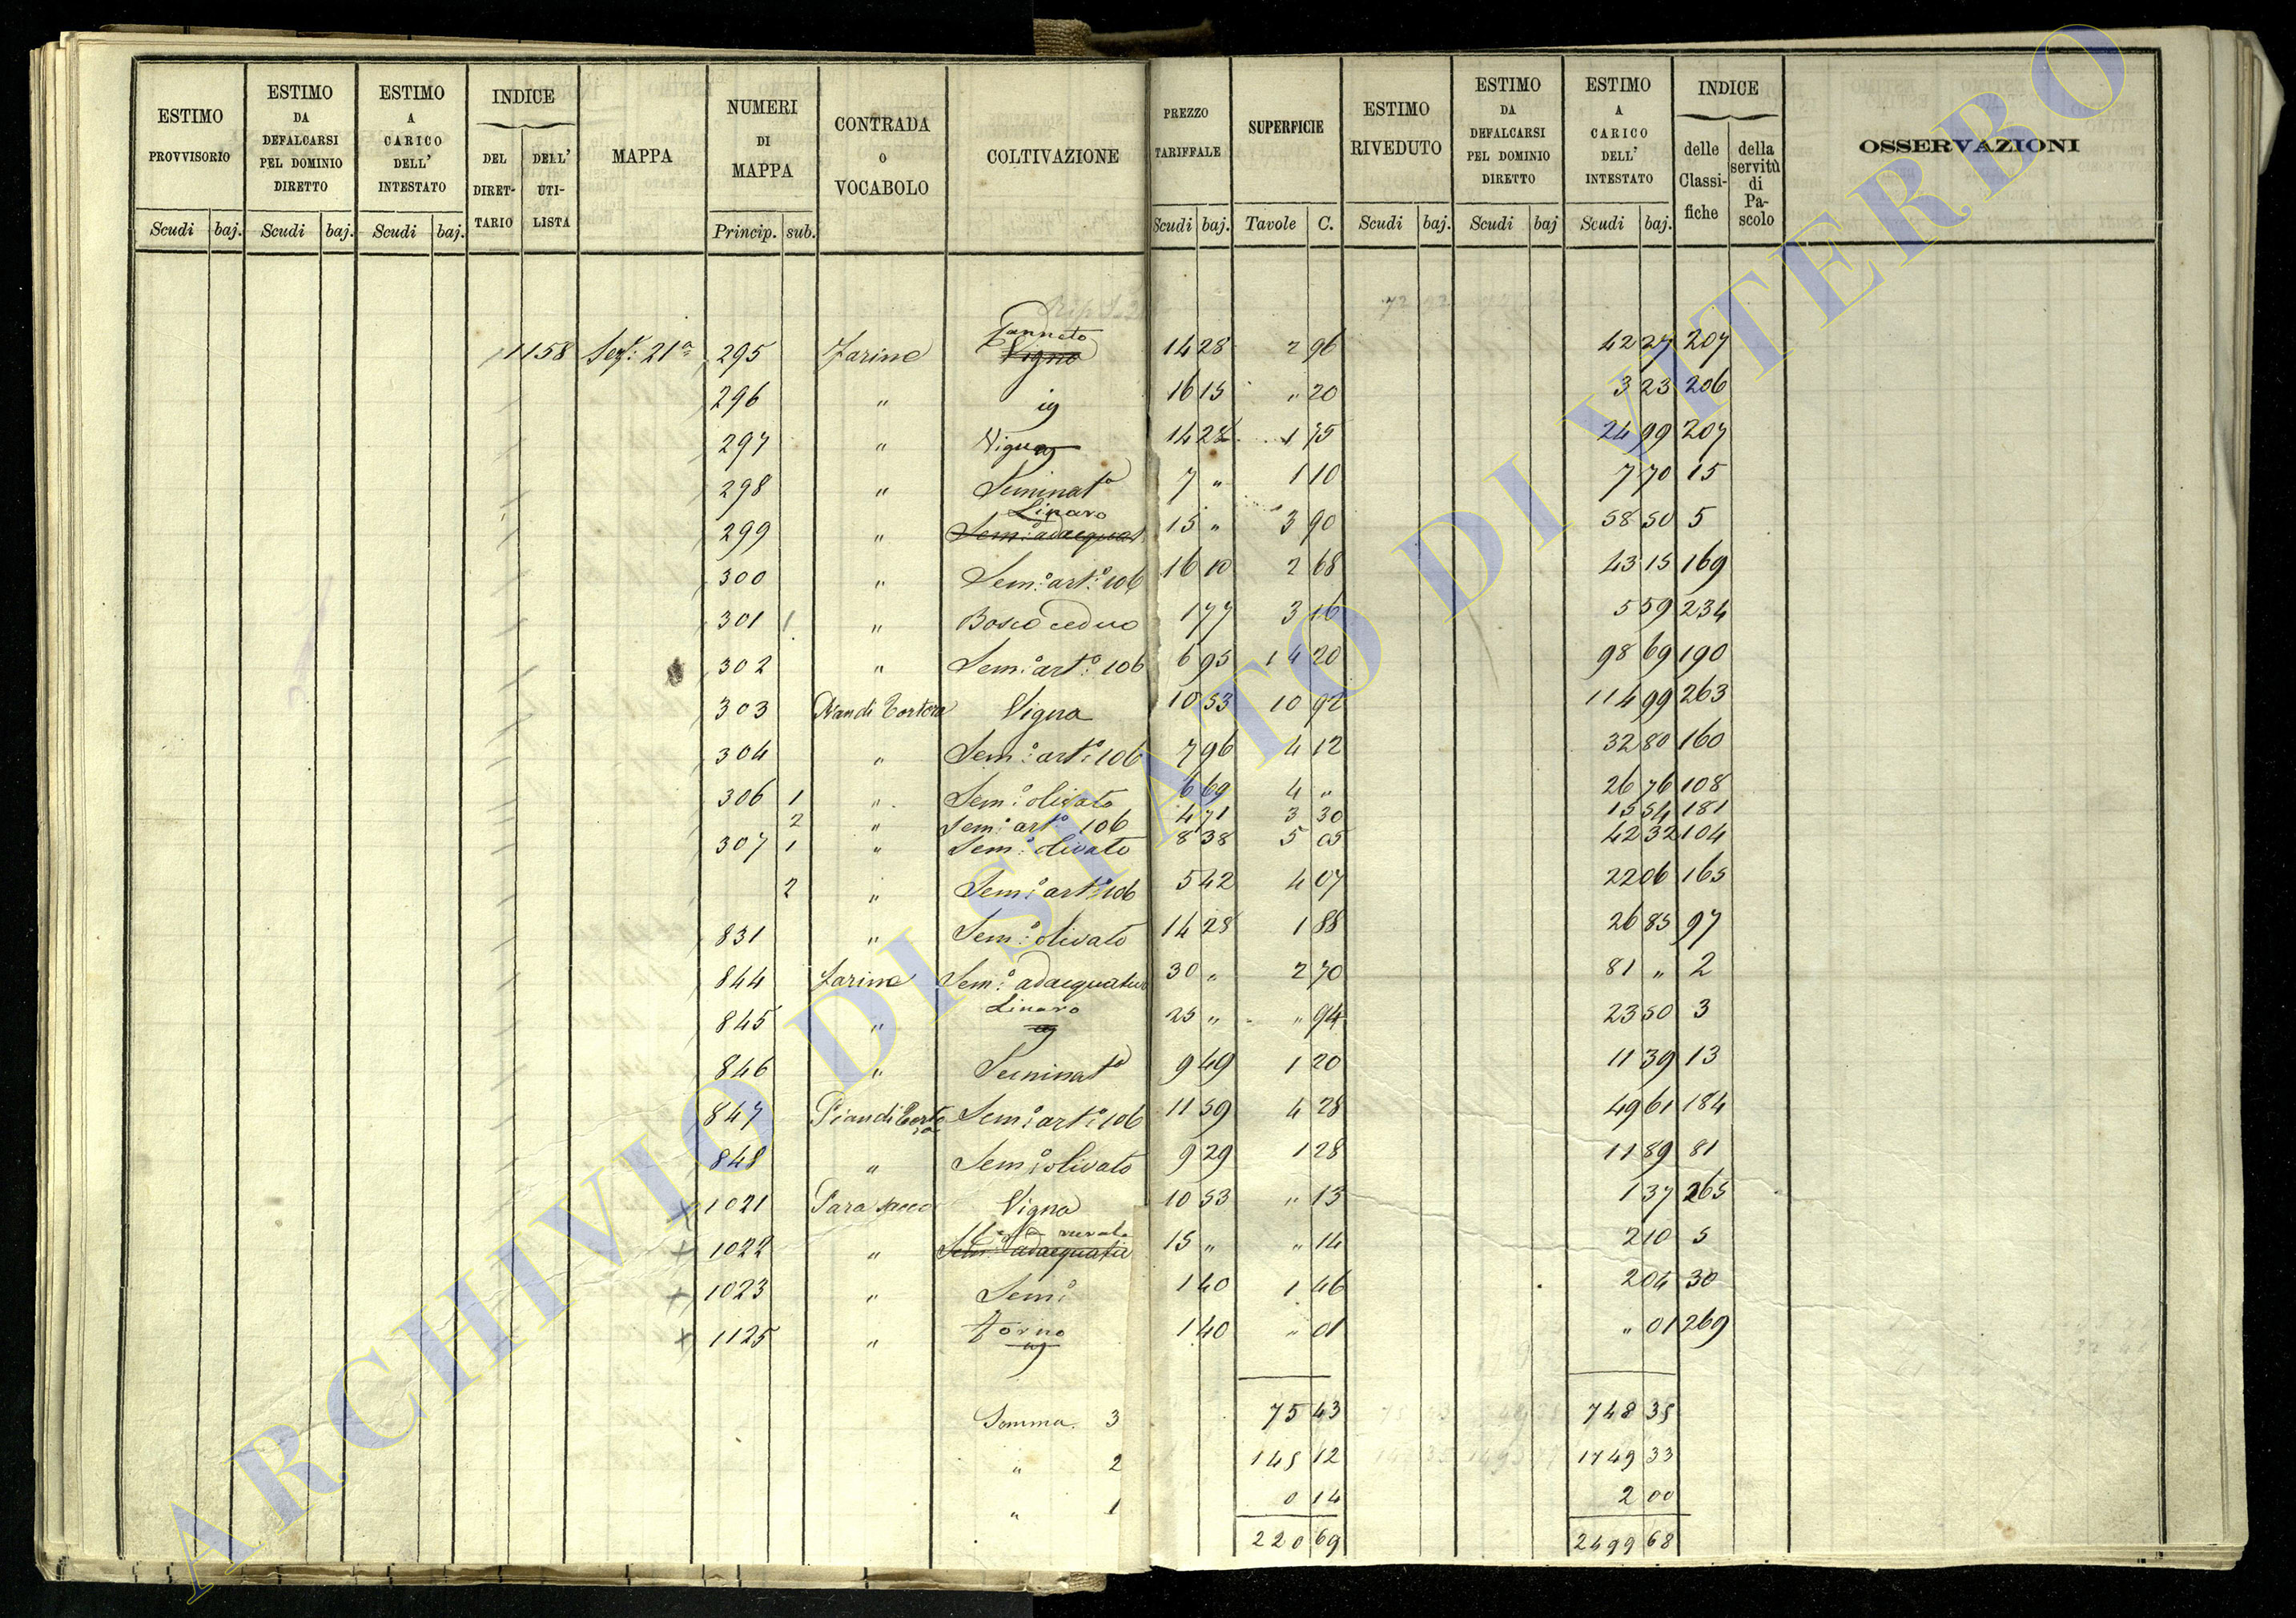 ESTIMO PROVVISORIO | ESTIMO DA DEFALCARSI PEL DOMINIO DIRETTO | ESTIMO A CARICO DELL' INTESTATO | INDICE DEL DIRETTARIO | DELL' UTILISTA | MAPPA | NUMERI DI MAPPA | CONTRADA O VOCABOLO | COLTIVAZIONE | PREZZO TARIFFALE | SUPERFICIE | ESTIMO RIVEDUTO | ESTIMO DA DEFALCARSI PEL DOMINIO DIRETTO | ESTIMO A CARICO DELL' INTESTATO | INDICE delle Classifiche | della servitù di Pascolo | OSSERVAZIONI
Scudi baj. Scudi baj. Scudi baj. Princip. sub. Scudi baj. Tavole C. Scudi baj. Scudi baj Scudi baj.
1158 Sez: 21a 295 Farine Canneto Vigna 14 28 2 96 42 27 207
296 " id 16 15 " 20 3 23 206
297 " Vigna 14 28 1 75 24 99 207
298 " Seminato 7 " 1 10 7 70 15
299 " Linaro Sem: adaequat 15 " 3 90 58 50 5
300 " Sem:o art:o 106 16 10 2 68 43 15 169
301 1 " Bosco ceduo 1 77 3 16 5 59 234
302 " Sem:o art:o 106 6 95 14 20 98 69 190
303 Pian di Tortora Vigna 10 53 10 92 114 99 263
304 " Sem:o art:o 106 7 96 4 12 32 80 160
306 1 " Sem:o olivato 6 69 4 " 26 76 108
2 " Sem:o art:o 106 4 71 3 30 15 54 181
307 1 " Sem:o olivato 8 38 5 05 42 32 104
2 " Sem:o art:o 106 5 42 4 07 22 06 165
831 " Sem:o olivato 14 28 1 88 26 85 97
844 Farine Sem:o adaequatur 30 " 2 70 81 " 2
845 " Linaro id 25 " " 94 23 50 3
846 " Seminato 9 49 1 20 11 39 13
847 Pian di Tortora Sem:o art:o 106 11 59 4 28 49 61 184
848 " Sem:o olivato 9 29 1 28 11 89 81
1021 Para Vigna 10 53 " 13 1 37 265
1022 " Sem: adaequatur 15 " " 14 2 10 5
1023 " Sem:o 1 40 1 46 2 04 30
1125 " id 1 40 " 01 " 01 269
Somma 3 75 43 748 35
" 2 145 12 1749 33
" 1 0 14 2 00
220 69 2499 68
ARCHIVIO DI STATO DI VITERBO